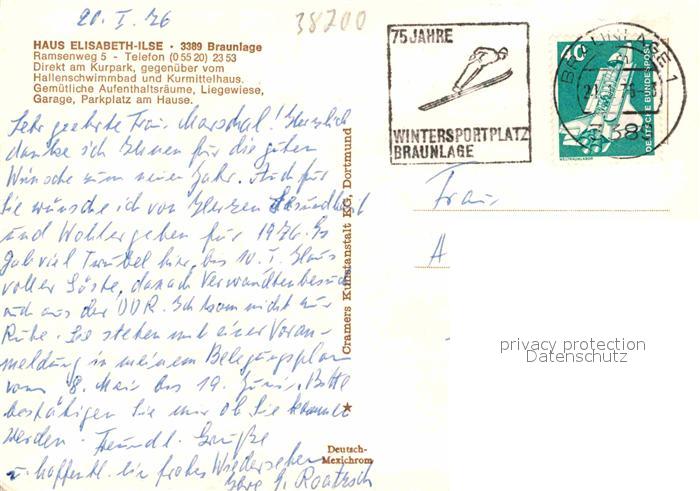 20. I. 76
38700
HAUS ELISABETH-ILSE · 3389 Braunlage
Ramsenweg 5 - Telefon (0 55 20) 23 53
Direkt am Kurpark, gegenüber vom
Hallenschwimmbad und Kurmittelhaus.
Gemütliche Aufenthaltsräume, Liegewiese,
Garage, Parkplatz am Hause.
Sehr geehrte Frau Marschal! Herzlich
danke ich Ihnen für die guten
Wünsche zum neuen Jahr. Auch für
Sie wünsche ich von Herzen Gesundheit
und Wohlergehen für 1976. Es
gab viel Trubel hier, bis 10. I. Haus
voller Gäste, danach Verwandtenbesuch
auch aus der DDR. Ich kam nicht zur
Ruhe. Sie stehen mit einer Voran-
meldung in meinem Belegungsplan
vom 8. Mai bis 19. Juni. Bitte
bestätigen Sie mir ob Sie kommen
werden. Freundl. Grüße
u. hoffentl. ein frohes Wiedersehen
Ihre
Cramers Kunstanstalt KG, Dortmund
Deutsch-
Mexichrom
75 JAHRE
WINTERSPORTPLATZ
BRAUNLAGE
BRAUNLAGE 1
40
DEUTSCHE BUNDESPOST
WELTRAUMLABOR
Frau
A
privacy protection
Datenschutz